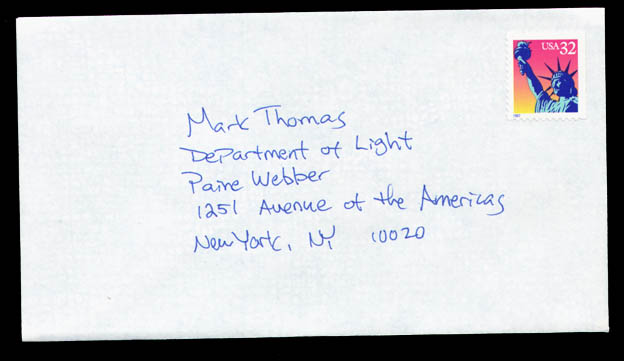 USA 32
1997
Mark Thomas
Department of Light
Paine Webber
1251 Avenue of the Americas
New York, NY 10020